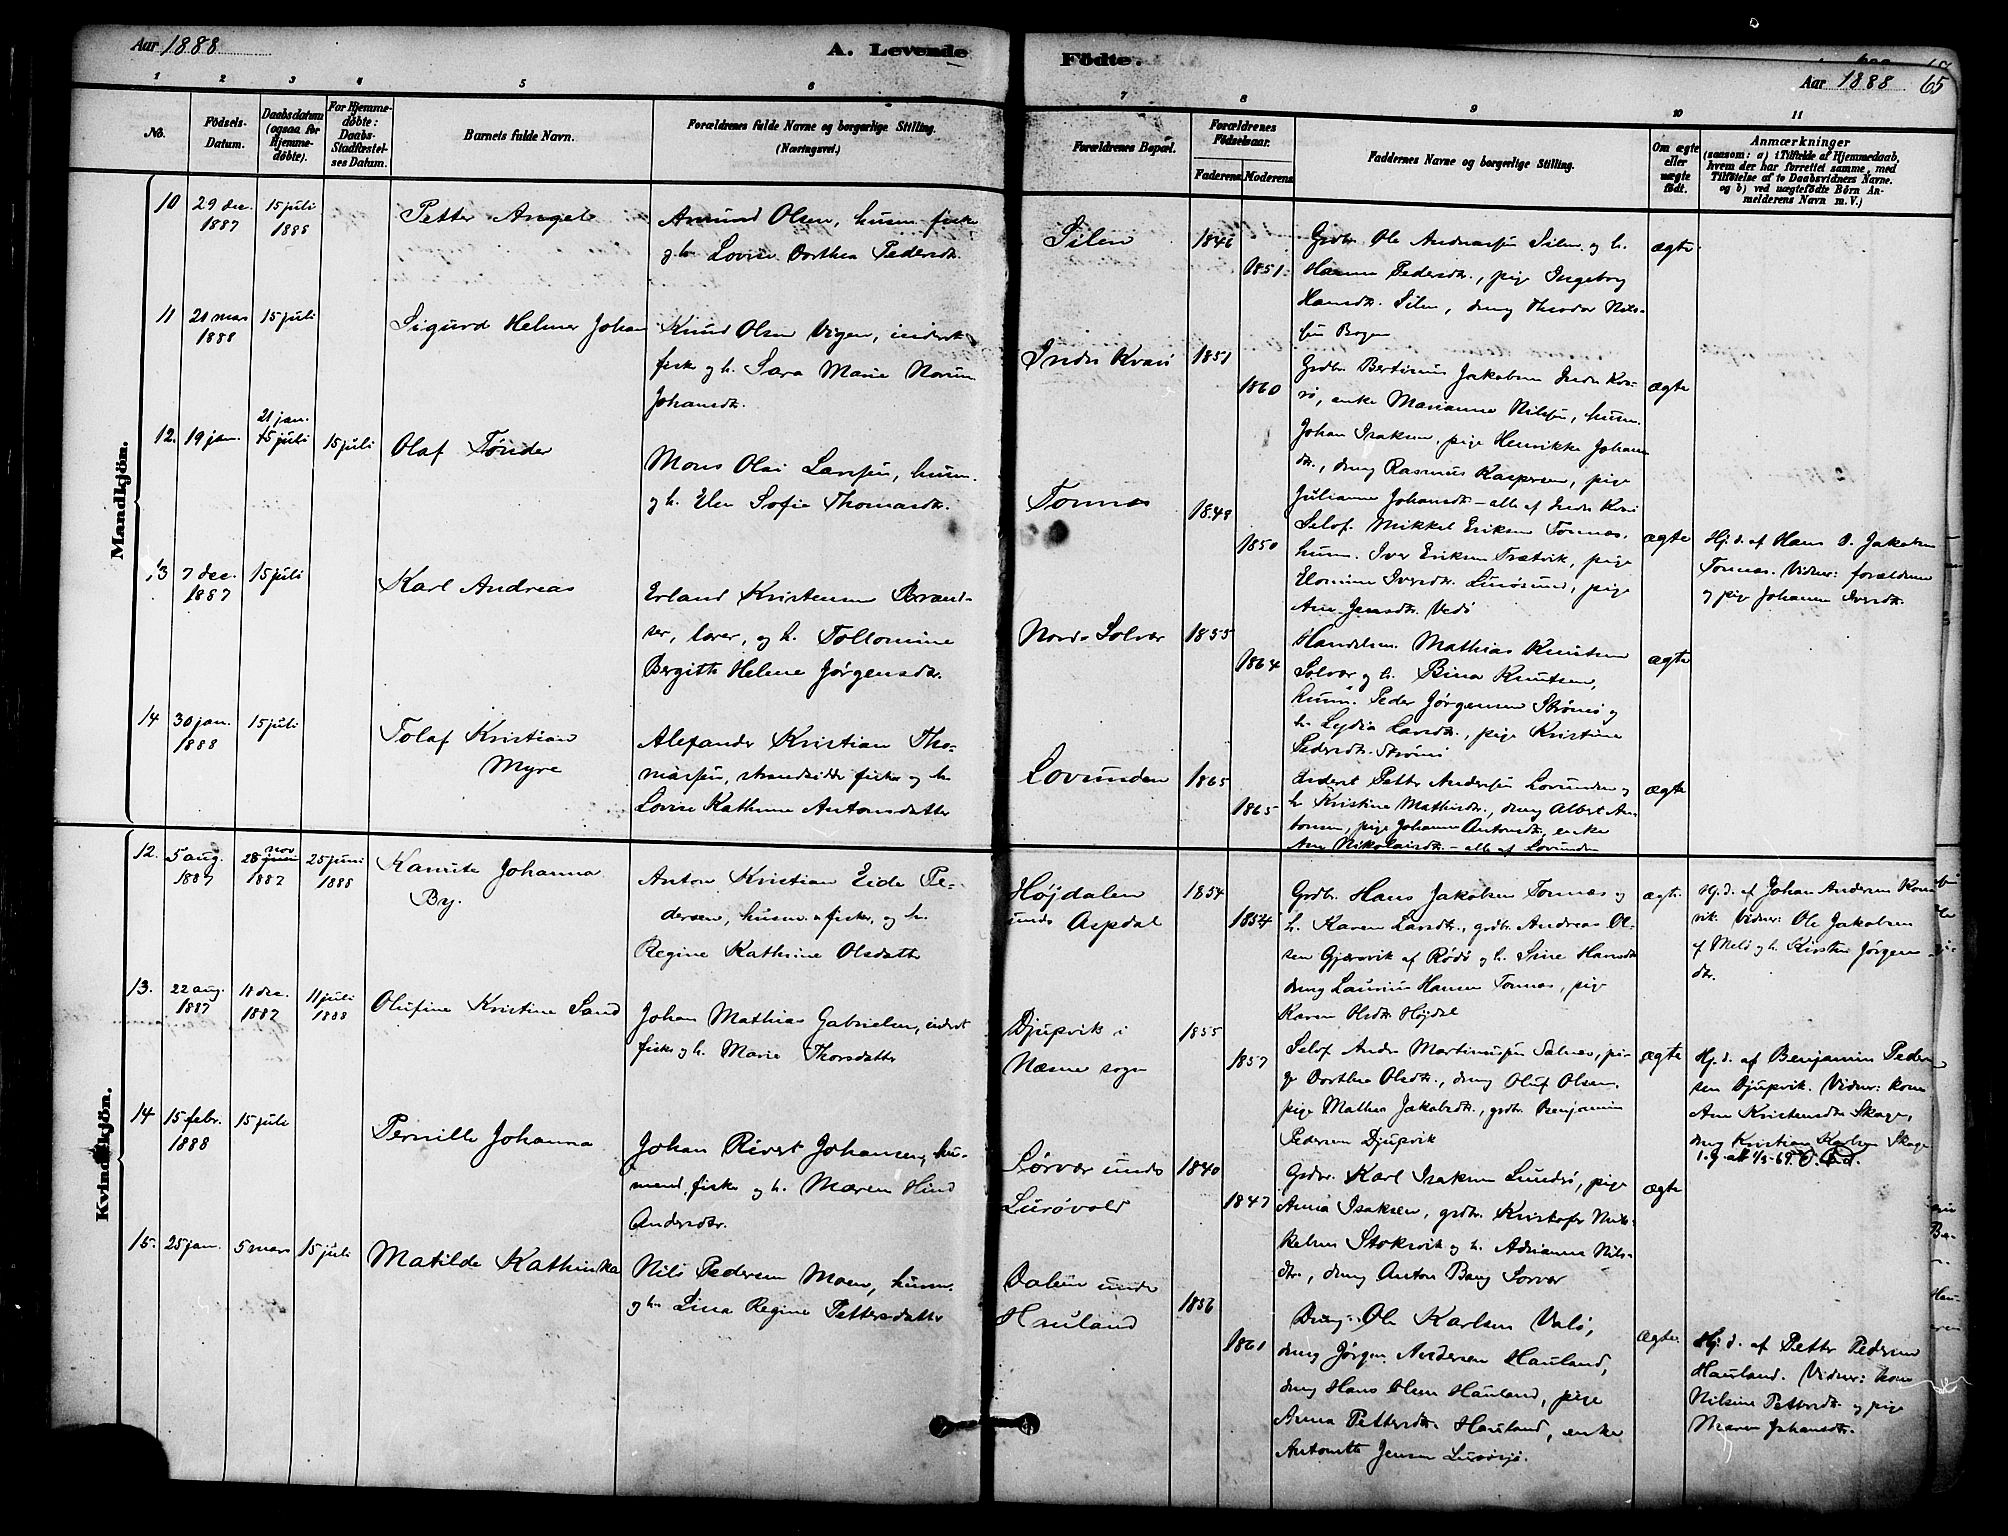 Aar 1888
A. Levende
Födte.
Aar 1888 65
1 2 3 4 5 6
7 8 9 10 11
No.
Födsels-
Datum.
Daabsdatum
(ogsaa for
Hjemme-
døbte).
For Hjemme-
døbte:
Daabs-
Stadfæstel-
ses Datum.
Barnets fulde Navn.
Forældrenes fulde Navne og borgerlige Stilling.
(Næringsvei.)
Forældrenes Bopæl.
Forældrenes
Födselsaar.
Faderens Moderens
Faddernes Navne og borgerlige Stilling.
Om ægte
eller
uægte
födt.
Anmærkninger
(saasom: a) i Tilfælde af Hjemmedaab,
hvem der har forrettet samme, med
Tilføielse af to Daabsvidners Navne.
og b) ved uægtefödte Börn An-
melderens Navn m. V.)
Mandkjön.
10 29 dec. 1887
15 juli 1888
Petter Angel
Amund Olsen, husm. fisker
og h. Lovise Dorthea Pedersdtr.
Silen
1846
1851
Grdbr. Ole Andreassen Silen og h.
Hanna Pedersdtr., pige Ingeborg
Hansdtr. Silen, dreng Theodor Nils-
sen Bogen
ægte
11 21 mars 1888
15 juli
Sigurd Helmer Johan
Knud Olsen Vigen, inderst
fisker og h. Sara Marie Norum
Johansdtr.
Indre Kvarø
1851
1860
Grdbr. Bertinus Jakobsen Indre Kva-
rø, enke Marianne Nilsen, husm.
Johan Isaksen, pige Henrikke Johans
dtr., dreng Rasmus Kaspersen, pige
Julianne Johansdtr. - alle af Indre Kvarø
ægte
12. 19 jan.
21 jan.
15 juli
15 juli
Olaf Tønder
Mons Olai Larsen, husm.
og h. Elen Sofie Thomasdtr.
Tonnes
1848
1850
Selvf. Mikkel Eriksen Tonnes,
husm. Iver Eriksen Trætvik, pige
Elomine Iversdtr. Lurøsund, pige
Ane Jensdtr. Vedø
ægte
Hj. d. af Hans O. Jakobsen
Tonnes. Vidner: forældrene
og pige Johanna Iversdtr.
13 7 dec. 1887
15 juli
Karl Andreas
Erland Kristensen Brand-
ser, lærer, og h. Tollomine
Bergitte Helene Jørgensdtr.
Nordre Solvær
1855
1864
Handelsm. Mathias Knutsen
Solvær og h. Bina Knutsen,
husm. Peder Jørgensen Strømø og
h. Lydia Larsdtr., pige Kristine
Pedersdtr. Strømø
ægte
14 30 jan. 1888
15 juli
Tolaf Kristian
Myre
Alexander Kristian Tho-
massen, strandsidder fisker og h.
Lovise Kathrine Antonsdatter
Lovunden
1865
1865
Inderst Petter Andersen Lovunden og
h. Kristine Mathisdtr., dreng Albert An-
tonsen, pige Johanna Antonsdtr., enke
Ane Nikolaisdtr. - alle af Lovunden
ægte
Kvindekjön.
12. 5 aug. 1887
28 nov 1887
25 juni 1888
Kanute Johanna
By.
Anton Kristian Eide Pe-
dersen, husm. & fisker, og h.
Regine Kathrine Olsdatter
Højdalen
under Aspdal
1854
1854
Grdbr. Hans Jakobsen Tonnes og
h. Karen Larsdtr., grdbr. Andreas Ol-
sen Gjærsvik af Rødø og h. Sine Hansdtr
dreng Laurius Hansen Tonnes, pige
Karen Olsdtr. Højdal
ægte
Hj. d. af Johan Andersen Korn
vik. Vidner: Ole Jakobsen
af Melø og h. Kirsten Jørgens
dtr.
13. 22 aug. 1887
11 dec. 1887
11 juli 1888
Olufine Kristine Sand
Johan Mathias Gabrielsen, inderst
fisker og h. Marie Thorsdatter
Djupvik i
Næsne sogn
1855
1857
Selvf Anders Martinussen Salnes, pi-
ge Dorthea Olsdtr., dreng Oluf Olsen,
pige Mathea Jakobsdtr., grdbr. Benjamin
Pedersen Djupvik
ægte
Hj. d. af Benjamin Peder
sen Djupvik. Vidner: kone
Ane Kristensdtr. Skage,
dreng Kristian Karlsen Skage
14 15 febr. 1888
15 juli
Pernille Johanna
Johan Rivert Johansen, hu-
smand, fisker og h. Maren Hind
Andersdtr.
Sørvær under
Lurøvold
1840
1847
Grdbr. Karl Isaksen Lundø, pige
Anna Isaksen, grdbr. Kristofer Mik-
kelsen Stoksvik og h. Adrianna Nils-
dtr., dreng Anton Bang Sorvær
ægte
15. 25 jan.
5 mars
15 juli
Matilde Kathinka
Nils Pedersen Moen, husm.
og h. Lina Regine Pettersdatter
Dalen under
Hauland
1856
1861
Dreng Ole Karlsen Valø,
dreng Jørgen Andersen Hauland,
dreng Hans Olsen Hauland, pige
Anna Pettersdtr. Hauland, enke
Antonette Jensen Lurøsjø.
ægte
Hj. d. af Petter Pedersen
Hauland. Vidner: kone
Nilsine Pettersdtr. og pige
Maren Johansdtr.